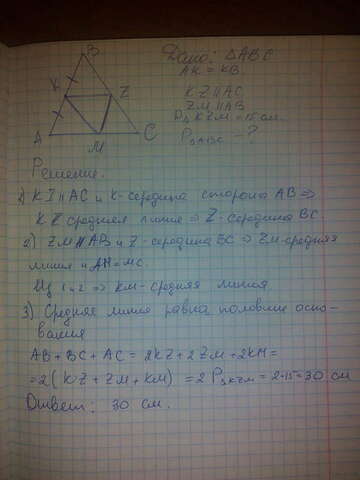 B
Дано: △ABC
AK = KB
K
Z
KZ ∥ AC
ZM ∥ AB
P△KZM = 15 см
A
C
P△ABC — ?
M
Решение.
1) KZ ∥ AC и K-середина стороны AB ⇒
KZ средняя линия ⇒ Z-середина BC.
2) ZM ∥ AB и Z-середина BC ⇒ ZM-средняя
линия и AM = MC.
Из 1 и 2 ⇒ KM-средняя линия
3) Средняя линия равна половине осно-
вания
AB + BC + AC = 2KZ + 2ZM + 2KM =
= 2 (KZ + ZM + KM) = 2 P△KZM = 2·15 = 30 см
Ответ: 30 см.